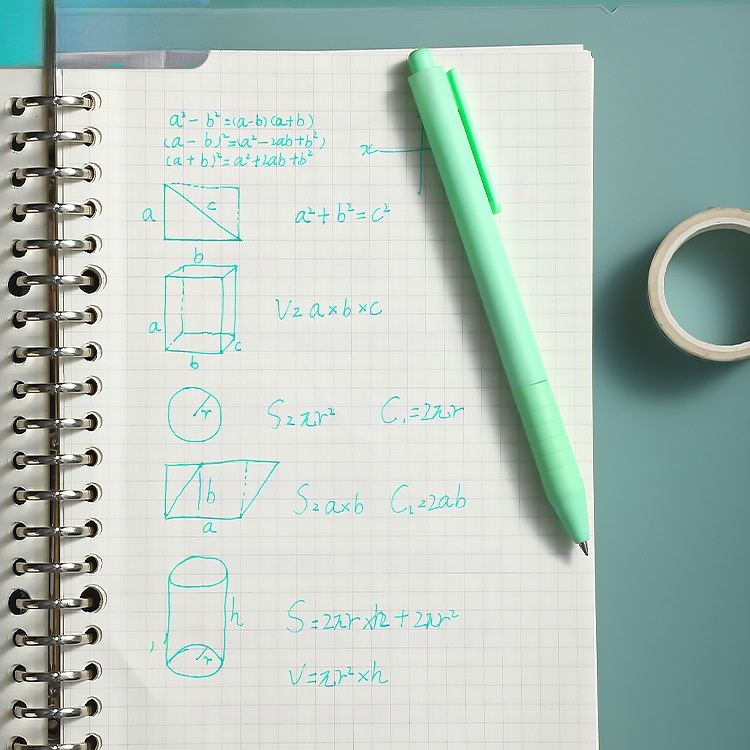 a² - b² = (a-b)(a+b)
(a - b)² = (a² - 2ab + b²)
(a + b)² = a² + 2ab + b²
x
a c a² + b² = c²
b
b
a V = a × b × c
c
b
r S = πr² C₁ = 2πr
b S = a × b C₂ = 2ab
a
h S = 2πr × h + 2πr²
r
V = πr² × h